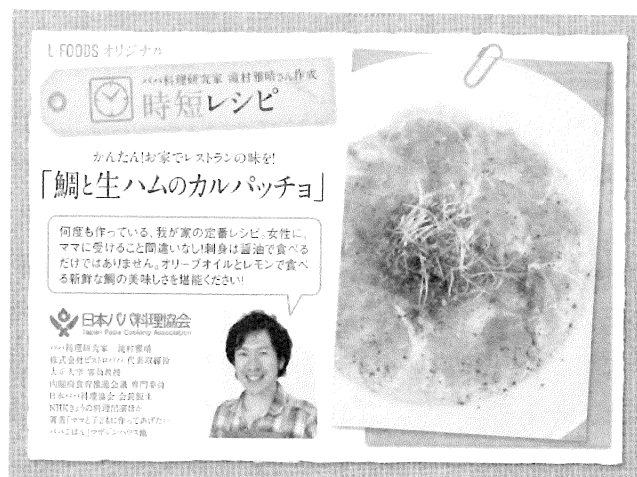 L FOODS オリジナル
パパ料理研究家 滝村雅晴さん作成
時短レシピ
かんたん!お家でレストランの味を!
「鯛と生ハムのカルパッチョ」
何度も作っている、我が家の定番レシピ。女性に、
ママに受けること間違いなし!刺身は醤油で食べる
だけではありません。オリーブオイルとレモンで食べ
る新鮮な鯛の美味しさを堪能ください!
日本パパ料理協会
Japan Papa Cooking Association
パパ料理研究家 滝村雅晴
株式会社ビストロパパ 代表取締役
大正大学 客員教授
内閣府食育推進会議 専門委員
日本パパ料理協会 会長飯士
NHKきょうの料理出演ほか
著書「ママと子どもに作ってあげたい
パパごはん」マガジンハウス他